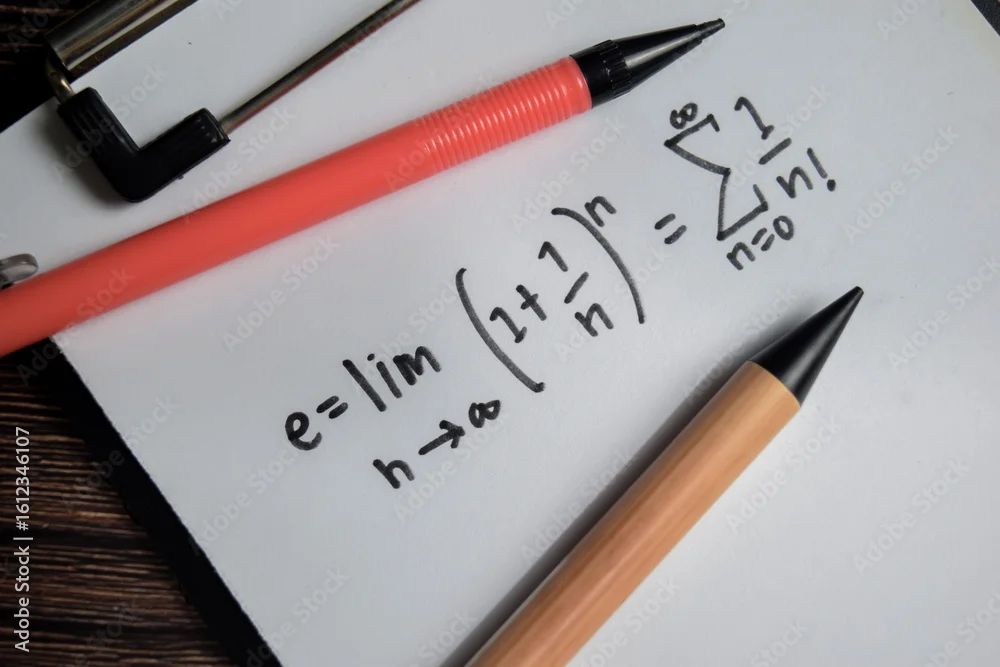 e = lim n→∞ (1 + 1/n)ⁿ = ∞ Σ n=0 1/n!
Adobe Stock | #1612346107